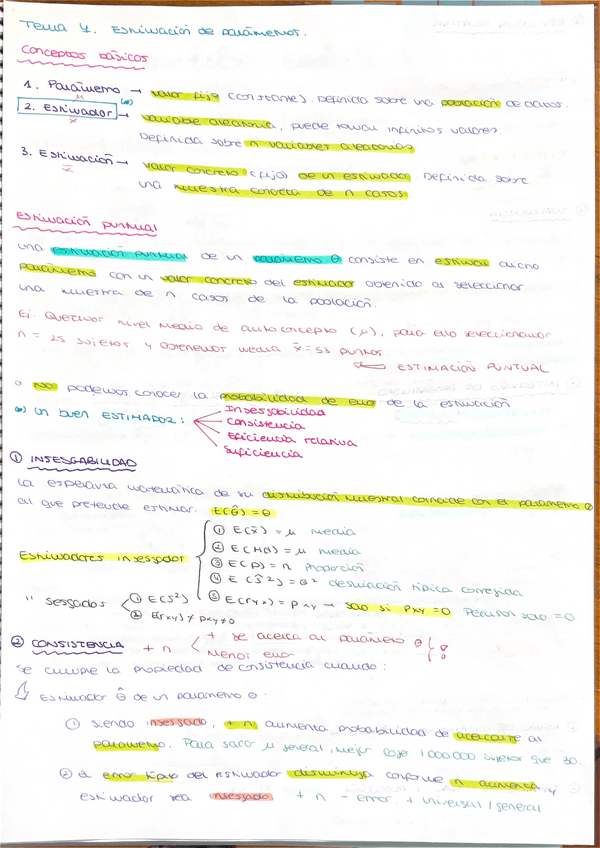 Tema 4. Estimación de parámetros.
Conceptos básicos
1. Parámetro → valor fijo (constante). Definida sobre una población de datos.
μ
2. Estimador (*) → variable aleatoria, puede tomar infinitos valores.
x̄
Definida sobre n variables aleatorias
3. Estimación → valor concreto (fijo) de un estimador. Definida sobre
x̄
una muestra concreta de n casos.
Estimación puntual
una estimación puntual de un parámetro θ consiste en estimar dicho
parámetro con un valor concreto del estimador obtenido al seleccionar
una muestra de n casos de la población.
Ej. Queremos nivel medio de autoconcepto (μ), para ello seleccionamos
n = 25 sujetos y obtenemos media x̄ = 53 puntos
⇐ ESTIMACIÓN PUNTUAL
○ No podemos conocer la probabilidad de error de la estimación
*) un buen ESTIMADOR:
Insesgabilidad
Consistencia
Eficiencia relativa
Suficiencia
① INSESGABILIDAD
La esperanza matemática de su distribución muestral coincide con el parámetro θ
al que pretende estimar. E(θ̂) = θ
Estimadores insesgador
① E(x̄) = μ media
② E(Md) = μ media
③ E(p) = π proporción
④ E(ŝ²) = σ² desviación típica corregida
⑤ E(rxy) = ρxy → solo si ρxy = 0 Pearson solo = 0
" sesgados
① E(S²)
② E(rxy) ≠ ρxy ≠ 0
② CONSISTENCIA + n
+ se acerca al parámetro θ
menos error
Se cumple la propiedad de consistencia cuando:
Estimador θ̂ de un parámetro θ:
① siendo insesgado, + n, aumenta probabilidad de acercarte al
parámetro. Para sacar μ general, mejor coge 1000000 sujetos que 30.
② el error típico del estimador disminuya conforme n aumenta y
estimador sea insesgado + n - error. + universal / general